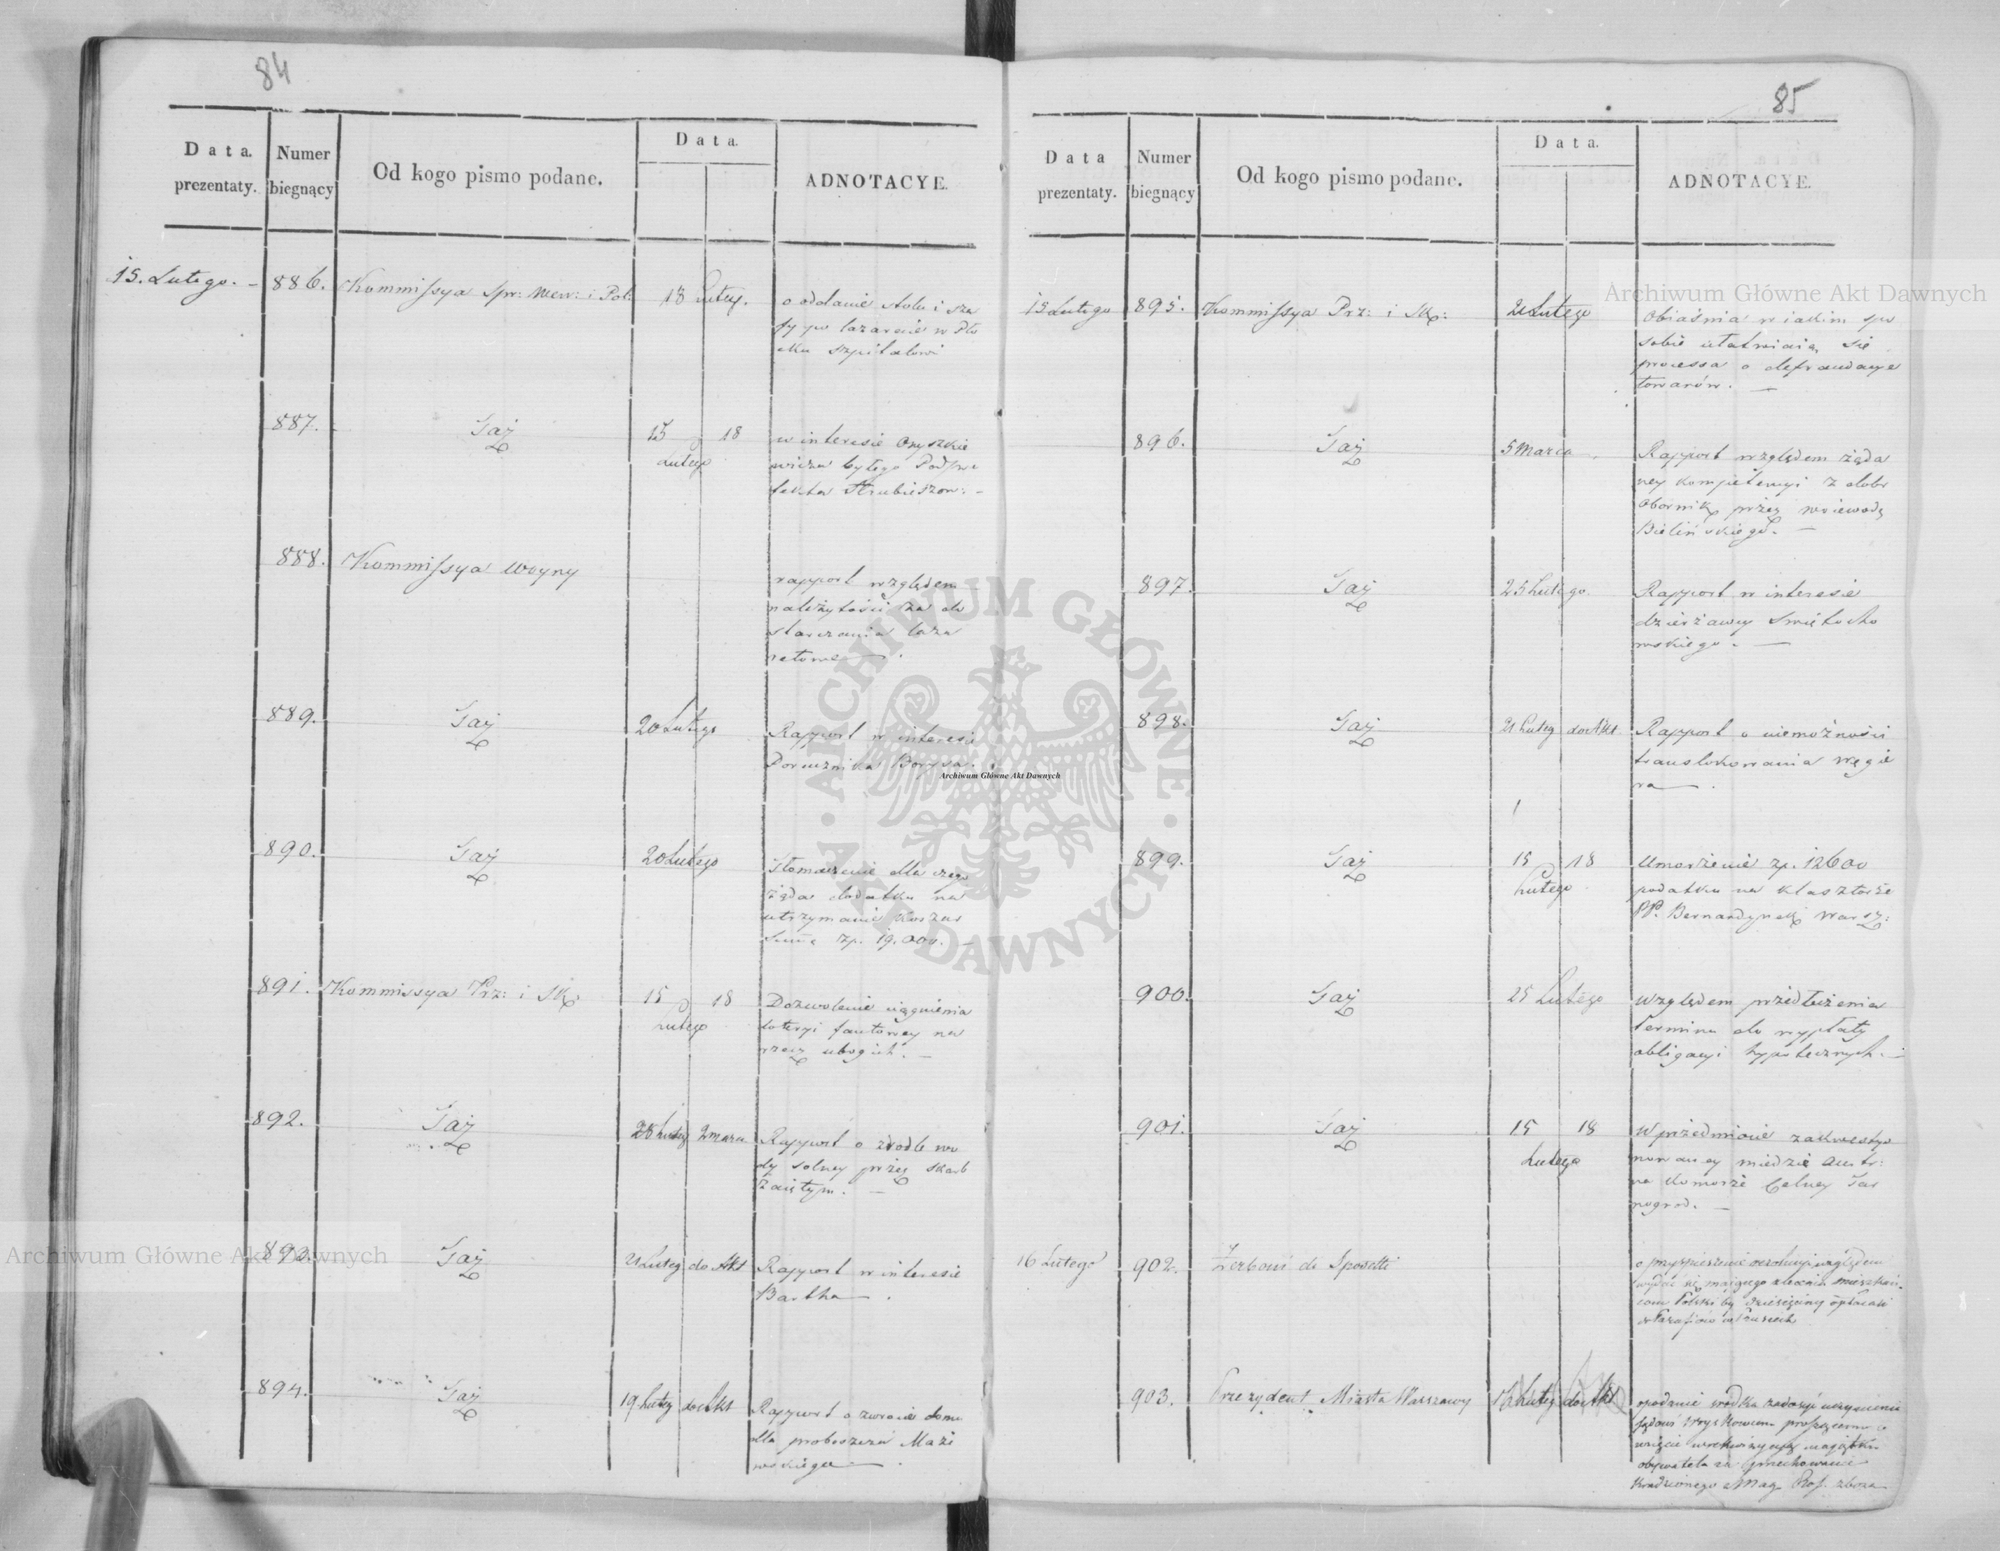 84
Data. prezentaty.
Numer biegnący
Od kogo pismo podane.
Data.
ADNOTACYE.
15. Lutego. - 886. Kommissya Spr: Wew: i Pol: 18 Lutego. o oddanie stołu i sza
fy po lazarecie w Pło
cku szpitalowi
887. Taż 15 18 Lutego w interesie Onyszkie
wicza byłego Podpre
fekta Hrubieszow: -
888. Kommissya Woyny rapport względem
należytości za do
starczania laza
retowe.
889. Taż 20 Lutego Rapport w interesie
Porucznika Borysa.
890. Taż 20 Lutego Tłomaczenie dla czego
żąda dodatku na
utrzymanie koszar
Summę zp. 19.000. -
891. Kommissya Prz: i Sk: 15 18 Lutego Dozwolenie ciągnienia
loteryi fantowey na
rzecz ubogich. -
892. Taż Luteg 2 marca Rapport o źrodle wo
dy solney przez skarb
zaiętym. -
893. Taż 21 Luteg do Akt Rapport w interesie
Bartha.
894. Taż 19 Luteg do Akt Rapport o zwrocie domu
dla proboszcza Mazi
wskiego.
85
Data prezentaty.
Numer biegnący
Od kogo pismo podane.
Data.
ADNOTACYE.
15 Lutego 895. Kommissya Prz: i Sk: 21 Lutego Obiaśnia w iakim spo
sobie ułatwiaią się
processa o defraudacye
towarów. -
896. Taż 5 Marca Rapport względem żąda
ney kompetencyi z dobr
Obornik przez wojewodę
Bielińskiego. -
897. Taż 25 Lutego. Rapport w interesie
dzierżawcy Swiętocho
wskiego. -
898. Taż 21 Luteg do Akt Rapport o niemożności
translokowania Węgie
ra.
899. Taż 15 18 Lutego Umorzenie zp. 12600
podatku na klasztorze
PP. Bernardynek Warsz:
900. Taż 25 Lutego Względem przedłużenia
terminu do wypłaty
obligacyi hypotecznych. -
901. Taż 15 18 Lutego W przedmiocie zakwestyo
nowaney miedzi Austr:
na komorze Celney Tar
nogrod. -
16 Lutego 902. Zerboni di Sposetti o przyspieszenie rezolucyi względem
wydać się maiącego zlecenia mieszkań-
com Polski by dziesięciny opłacali
903. Prezydent Miasta Warszawy Luteg do Akt
obywatela za
Kradzionego
Archiwum Główne Akt Dawnych
Archiwum Główne Akt Dawnych
Archiwum Główne Akt Dawnych
ARCHIWUM GŁÓWNE AKT DAWNYCH